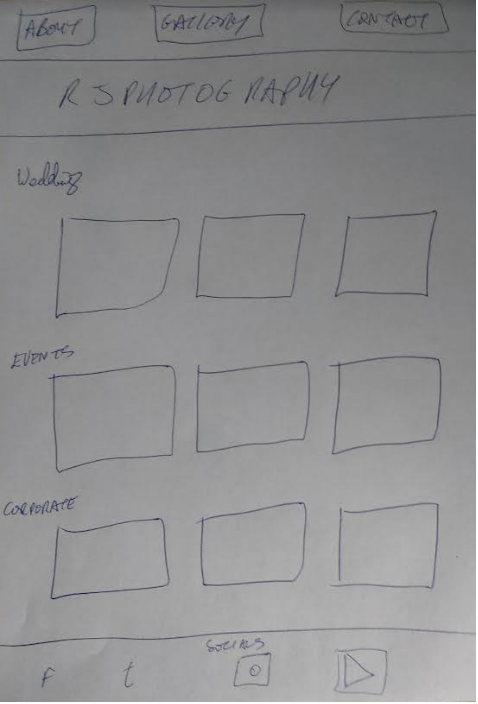 ABOUT GALLERY CONTACT
RJ PHOTOGRAPHY
Wedding
EVENTS
CORPORATE
SOCIALS
F t